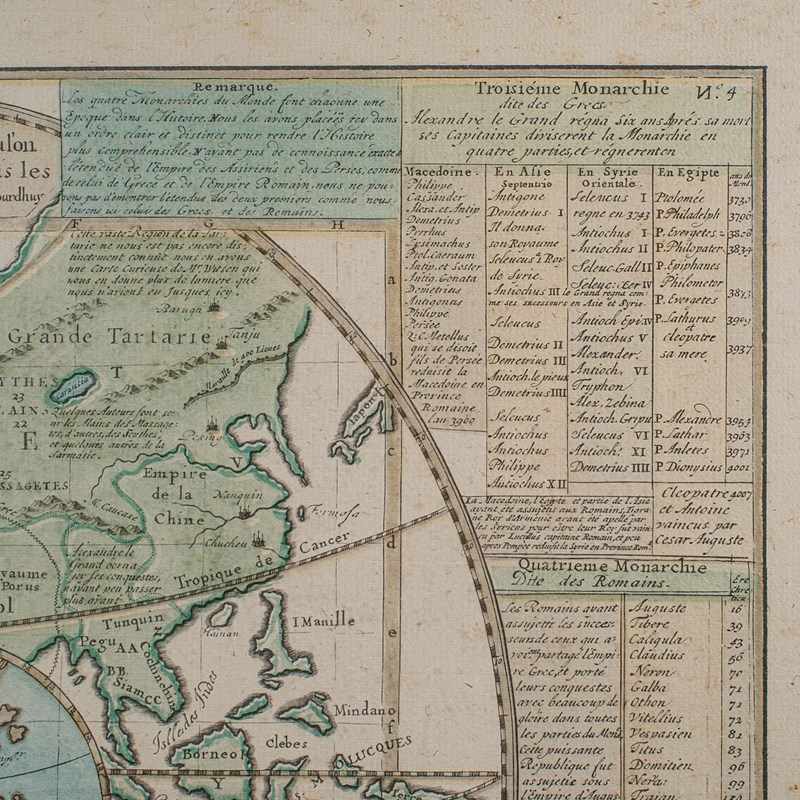 ul'on
s les
ourdhuy
Remarque.
Les quatre Monarchies du Monde font chacune une
Epoque dans l'Histoire. Nous les avons placées icy dans
un ordre clair et distinct pour rendre l'Histoire
plus Comprehensible. N'ayant pas de connoissance exacte de
l'étendue de l'Empire des Assiriens et des Perses, comme
de celui de Grece et de l'Empire Romain, nous ne pou-
vons pas démontrer l'étendue des deux premiers comme nous
faisons icy celui des Grecs, et des Romains.
Troisiéme Monarchie
N.º 4
dite des Grecs.
Alexandre le Grand regna Six ans Après sa mort
ses Capitaines diviserent la Monarchie en
quatre parties, et régnerent en
Macedoine.
Philippe
Cassander
Alexa. et Antip
Demetrius
Pyrrhus
Lysimachus
Ptol. Caeraum
Antip. et Soster
Antig. Gonata
Demetrius
Antigonus
Philippe
Persée
Q. C. Metellus
qui se disoit
fils de Persée
reduisit la
Macedoine en
Province
Romaine
l'an 3900
En Asie
Septentrio
Antigone
Demetrius I
Il donna
son Royaume
Seleucus à Roy
de Syrie.
Antiochus III le Grand regna com
me ses successeurs en Asie et Syrie.
Seleucus
Demetrius II
Demetrius III
Antioch. le pieux
Demetrius IIII
Seleucus
Antiochus
Antiochus
Philippe
Antiochus XII
En Syrie
Orientale.
Seleucus I
regne en 3743
Antiochus I
Antiochus II
Seleuc. Gall II
Seleuc. Cer IV
Antioch Epi IV
Antiochus V
Alexander.
Antioch. VI
Tryphon
Alex. Zebina
Antioch. Grypu
Seleucus VI
Antioch. XI
Demetrius IIII
En Egipte
Ptolomée
P. Philadelph
P. Evergetes
P. Philopater
P. Epiphanes
Philometor
P. Evergetes
P. Lathurus
et
cleopatre
sa mere
P. Alexandre
P. Lathar
P. Auletes
P. Dionysius
ans du
Mond.
3730
3766
3808
3834
3873
3909
3937
3953
3963
3971
4001
La Macedoine, l'Egypte et partie de l'Asie
ayant été assujetis aux Romains, Tigra
ne Roy d'Armenie ayant été apelé par
les Syriens pour être leur Roy fut vain
cu par Lucullus capitaine Romain, et peu
après Pompée reduisit la Syrie en Province Rom.
Cleopatre 4007
et Antoine
vaincus par
Cesar Auguste
Quatrieme Monarchie
Dite des Romains.
Ere
Chre
tien
Les Romains ayant
assujetti les succes-
seurs de ceux qui a-
partagé l'Empi-
re Grec, et porté
leurs conquestes
avec beaucoup de
gloire dans toutes
les parties du Monde
Cette puissante
République fut
assujetie sous
l'Empire d'Augus
Auguste 16
Tibere 39
Caligula 43
Claudius 56
Neron 70
Galba 71
Othon 71
Vitellius 72
Vespasien 81
Titus 83
Domitien 96
Nerva 99
Trajan
F G H
Cette vaste Region de la Tar-
tarie ne nous est pas encore dis-
tinctement connue nous en avons
une Carte Curieuse de Mr. Witsen qui
nous en donne plus de lumiere que
nous n'avions eu Jusques icy.
Bargu
Grande Tartarie
Tanju
Muraille de 400 Lieues
T
YTHES
23
AINS
22
E
Quelques Auteurs font se-
ur les Mains des Massage-
tes, d'autres des Scythes,
et quelques autres de la
Sarmatie.
Peking
V
25
SSAGETES
M. Caucase
Empire
de la
Chine
Nanquin
Chucheu
Formosa
Iapon
Alexandre le
Grand borna
icy ses conquestes,
n'ayant peu passer
plus avant
yaume
Porus
ol
Tropique de Cancer
Tunquin
Hainan
Pegu AA
BB
Cochinchine
Siam CC
I Manille
Isles des Indes
Mindano
Clebes
Borneo
MOLLUCQUES
Y
Terre
a
b
c
d
e
f